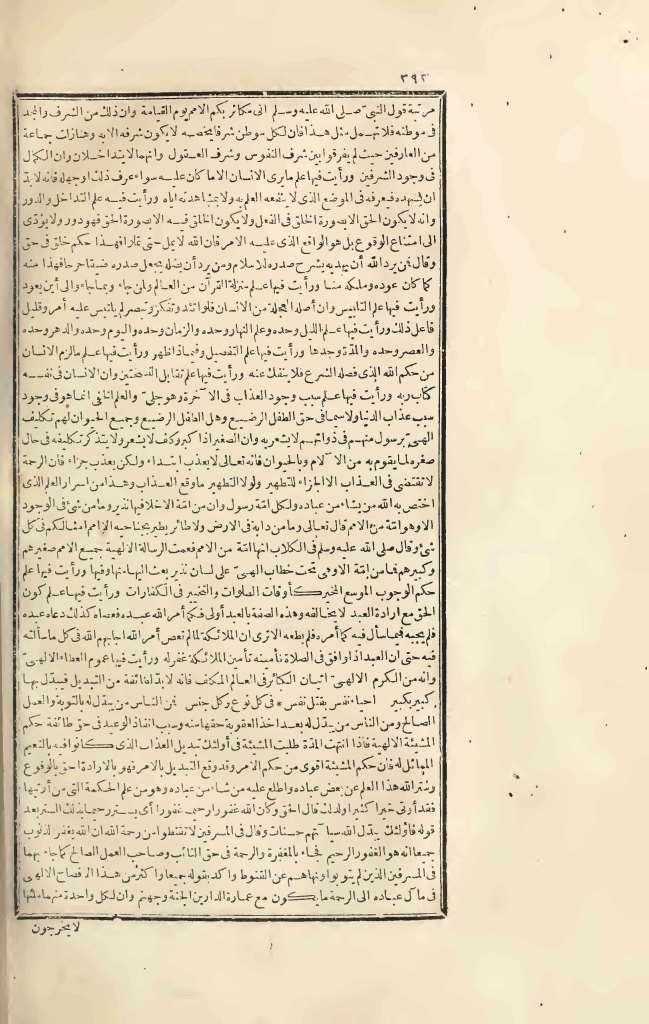 ٣٩٢
مرتبة قول النبي صلى الله عليه وسلم انى مكاثر بكم الامم يوم القيامة وان ذلك من الشرف والمجد
فى موطنه فلا تهمل مثل هذا فان لكل موطن شرفا يخصه لا يكون شرفه الا به وهنا زلت جماعة
من العارفين حيث لم يفرقوا بين شرف النفوس وشرف العقول وانهما لا يتداخلان وان الكمال
فى وجود الشرفين ورأيت فيها علم ما يرى الانسان الا ما كان عليه سواء عرف ذلك او جهله فانه لابد
ان يشهده فيعرفه فى الموضع الذى لا ينفعه العلم به ولا مشاهدته اياه ورأيت فيه علم التداخل والدور
وانه لا يكون الحق الا بصورة الخلق فى الفعل ولا يكون الخلق فيه الا بصورة الحق فهو دور ولا يؤدى
الى امتناع الوقوع بل هو الواقع الذى عليه الامر فان الله لا يمل حتى تملوا فهذا حكم خلق فى حق
وقال فمن يرد الله أن يهديه يشرح صدره للاسلام ومن يرد أن يضله يجعل صدره ضيقا حرجا فهذا منه
كما كان عوده وملكه منا ورأيت فيها علم منزلة القرآن من العالم ولمن جاء وبما جاء والى أين يعود
ورأيت فيها علم التلبيس وأن أصله العجلة من الانسان فلو اتئد وتفكر وتبصر لم يلتبس عليه أمر وقليل
فاعل ذلك ورأيت فيها علم الليل وحده وعلم النهار وحده والزمان وحده واليوم وحده والدهر وحده
والعصر وحده والمدة وحدها ورأيت فيها علم التفصيل وفيماذا ظهر ورأيت فيها علم ما لزم الانسان
من حكم الله الذى فصله الشرع فلا ينفك عنه ورأيت فيها علم تقابل النسختين وان الانسان فى نفسه
كتاب ربه ورأيت فيها علم سبب وجود العذاب فى الآخرة وهو جلى والعلم الخفى انما هو فى وجود
سبب عذاب الدنيا ولا سيما فى حق الطفل الرضيع وهل الطفل الرضيع وجميع الحيوان لهم تكليف
الهى برسول منهم فى ذواتهم لا يشعر به وان الصغير اذا كبر وكلف لا يشعر ولا يتذكر تكليفه فى حال
صغره لما يقوم به من الآلام وبالحيوان فانه تعالى لا يعذب ابتداء ولكن يعذب جزاء فان الرحمة
لا تقتضى فى العذاب الا الجزاء للتطهير ولولا التطهير ما وقع العذاب وهذا من اسرار العلم الذى
اختص به الله من يشاء من عباده ولكل امة رسول وان من امة الا خلا فيها نذير وما من شئ فى الوجود
الا وهو امة من الامم قال تعالى وما من دابة فى الارض ولا طائر يطير بجناحيه الا امم امثالكم فى كل
شئ وقال صلى الله عليه وسلم فى الكلاب انها امة من الامم فعمت الرسالة الالهية جميع الامم صغيرهم
وكبيرهم فما من امة الا وهى تحت خطاب الهى على لسان نذير بعث اليها منها وفيها ورأيت فيها علم
حكم الوجوب الموسع المخير كأوقات الصلوات والتخيير فى الكفارات ورأيت فيها علم كون
الحق مع ارادة العبد لا يخالفه وهذه الصفة بالعبد أولى فكما أمر الله عبده فعصاه كذلك دعاه عبده
فلم يجبه فيما سأل فيه كما أمره فلم يطعه الا ترى ان الملائكة لما لم تعص أمر الله اجابهم الله فى كل ما سألته
فيه حتى ان العبد اذا وافق فى الصلاة تأمينه تأمين الملائكة غفر له ورأيت فيها عموم العطاء الالهى
وانه من الكرم الالهى اتيان الكبائر فى العالم المكلف فانه لا بد لطائفة من التبديل فيبدل بها
كبير بكبير احياء نفس بقتل نفس فى كل نوع وكل جنس فمن الناس من يبدل له بالتوبة والعمل
الصالح ومن الناس من يبدل له بعد اخذ العقوبة حقها منه وسبب انفاذ الوعيد فى حق طائفة حكم
المشيئة الالهية فاذا انتهت المدة طلبت المشيئة فى أولئك تبديل العذاب الذى كانوا فيه بالنعيم
المماثل له فان حكم المشيئة اقوى من حكم الامر وقد وقع التبديل بالامر فهو بالارادة احق بالوقوع
وستر الله هذا العلم عن بعض عباده واطلع عليه من شاء من عباده وهو من علم الحكمة التى من أوتيها
فقد أوتى خيرا كثيرا ولذلك قال الحق وكان الله غفورا رحيما غفورا أى يستر رحيما بذلك الستر بعد
قوله فاولئك يبدل الله سيآتهم حسنات وقال فى المسرفين لا تقنطوا من رحمة الله ان الله يغفر الذنوب
جميعا انه هو الغفور الرحيم فجاء بالمغفرة والرحمة فى حق التائب وصاحب العمل الصالح كما جاء بهما
فى المسرفين الذين لم يتوبوا ونهاهم عن القنوط واكد بقوله جميعا واكثر من هذا الافصاح الالهى
فى مآل عباده الى الرحمة ما يكون مع عمارة الدارين الجنة وجهنم وان لكل واحدة منهما ملئها
لا يخرجون